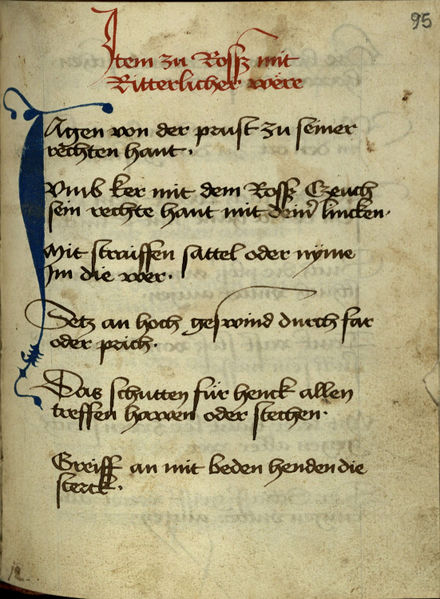 95
Item zu Rossz mit
Ritterlicher were
Iagen von der prust zu seiner
rechten hant.
Vmb ker mit dem Rossz Czeuch
sein rechte hant mit deinr lincken.
Mit straiffen sattel oder nyme
Im die wer.
Setz an hoch geswind durch far
oder prich.
Das schutten für henck allen
treffen hawen oder stechen.
Greiff an mit beden henden die
sterck.